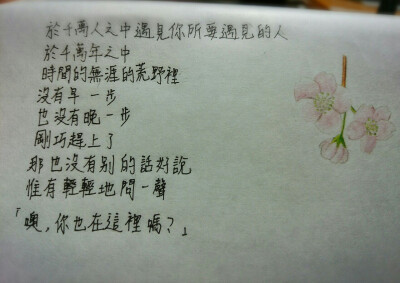 於千萬人之中遇見你所要遇見的人
於千萬年之中
時間的無涯的荒野裡
沒有早一步
也沒有晚一步
剛巧趕上了
那也沒有別的話好說
惟有輕輕地問一聲
「噢，你也在這裡嗎？」